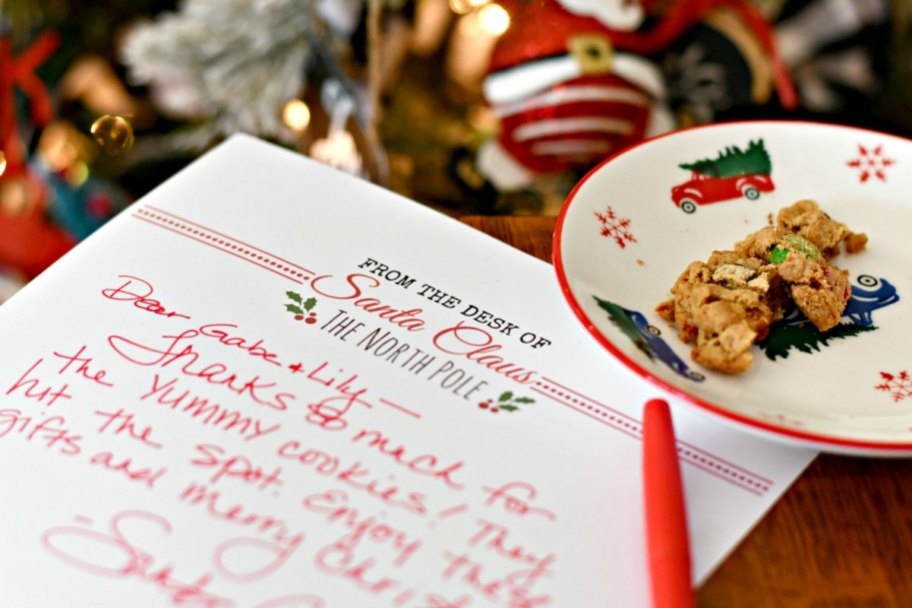 FROM THE DESK OF
Santa Claus
THE NORTH POLE
Dear Gabe & Lily —
Thanks so much for
the yummy cookies! They
hit the spot. Enjoy the
gifts and Merry
- Santa